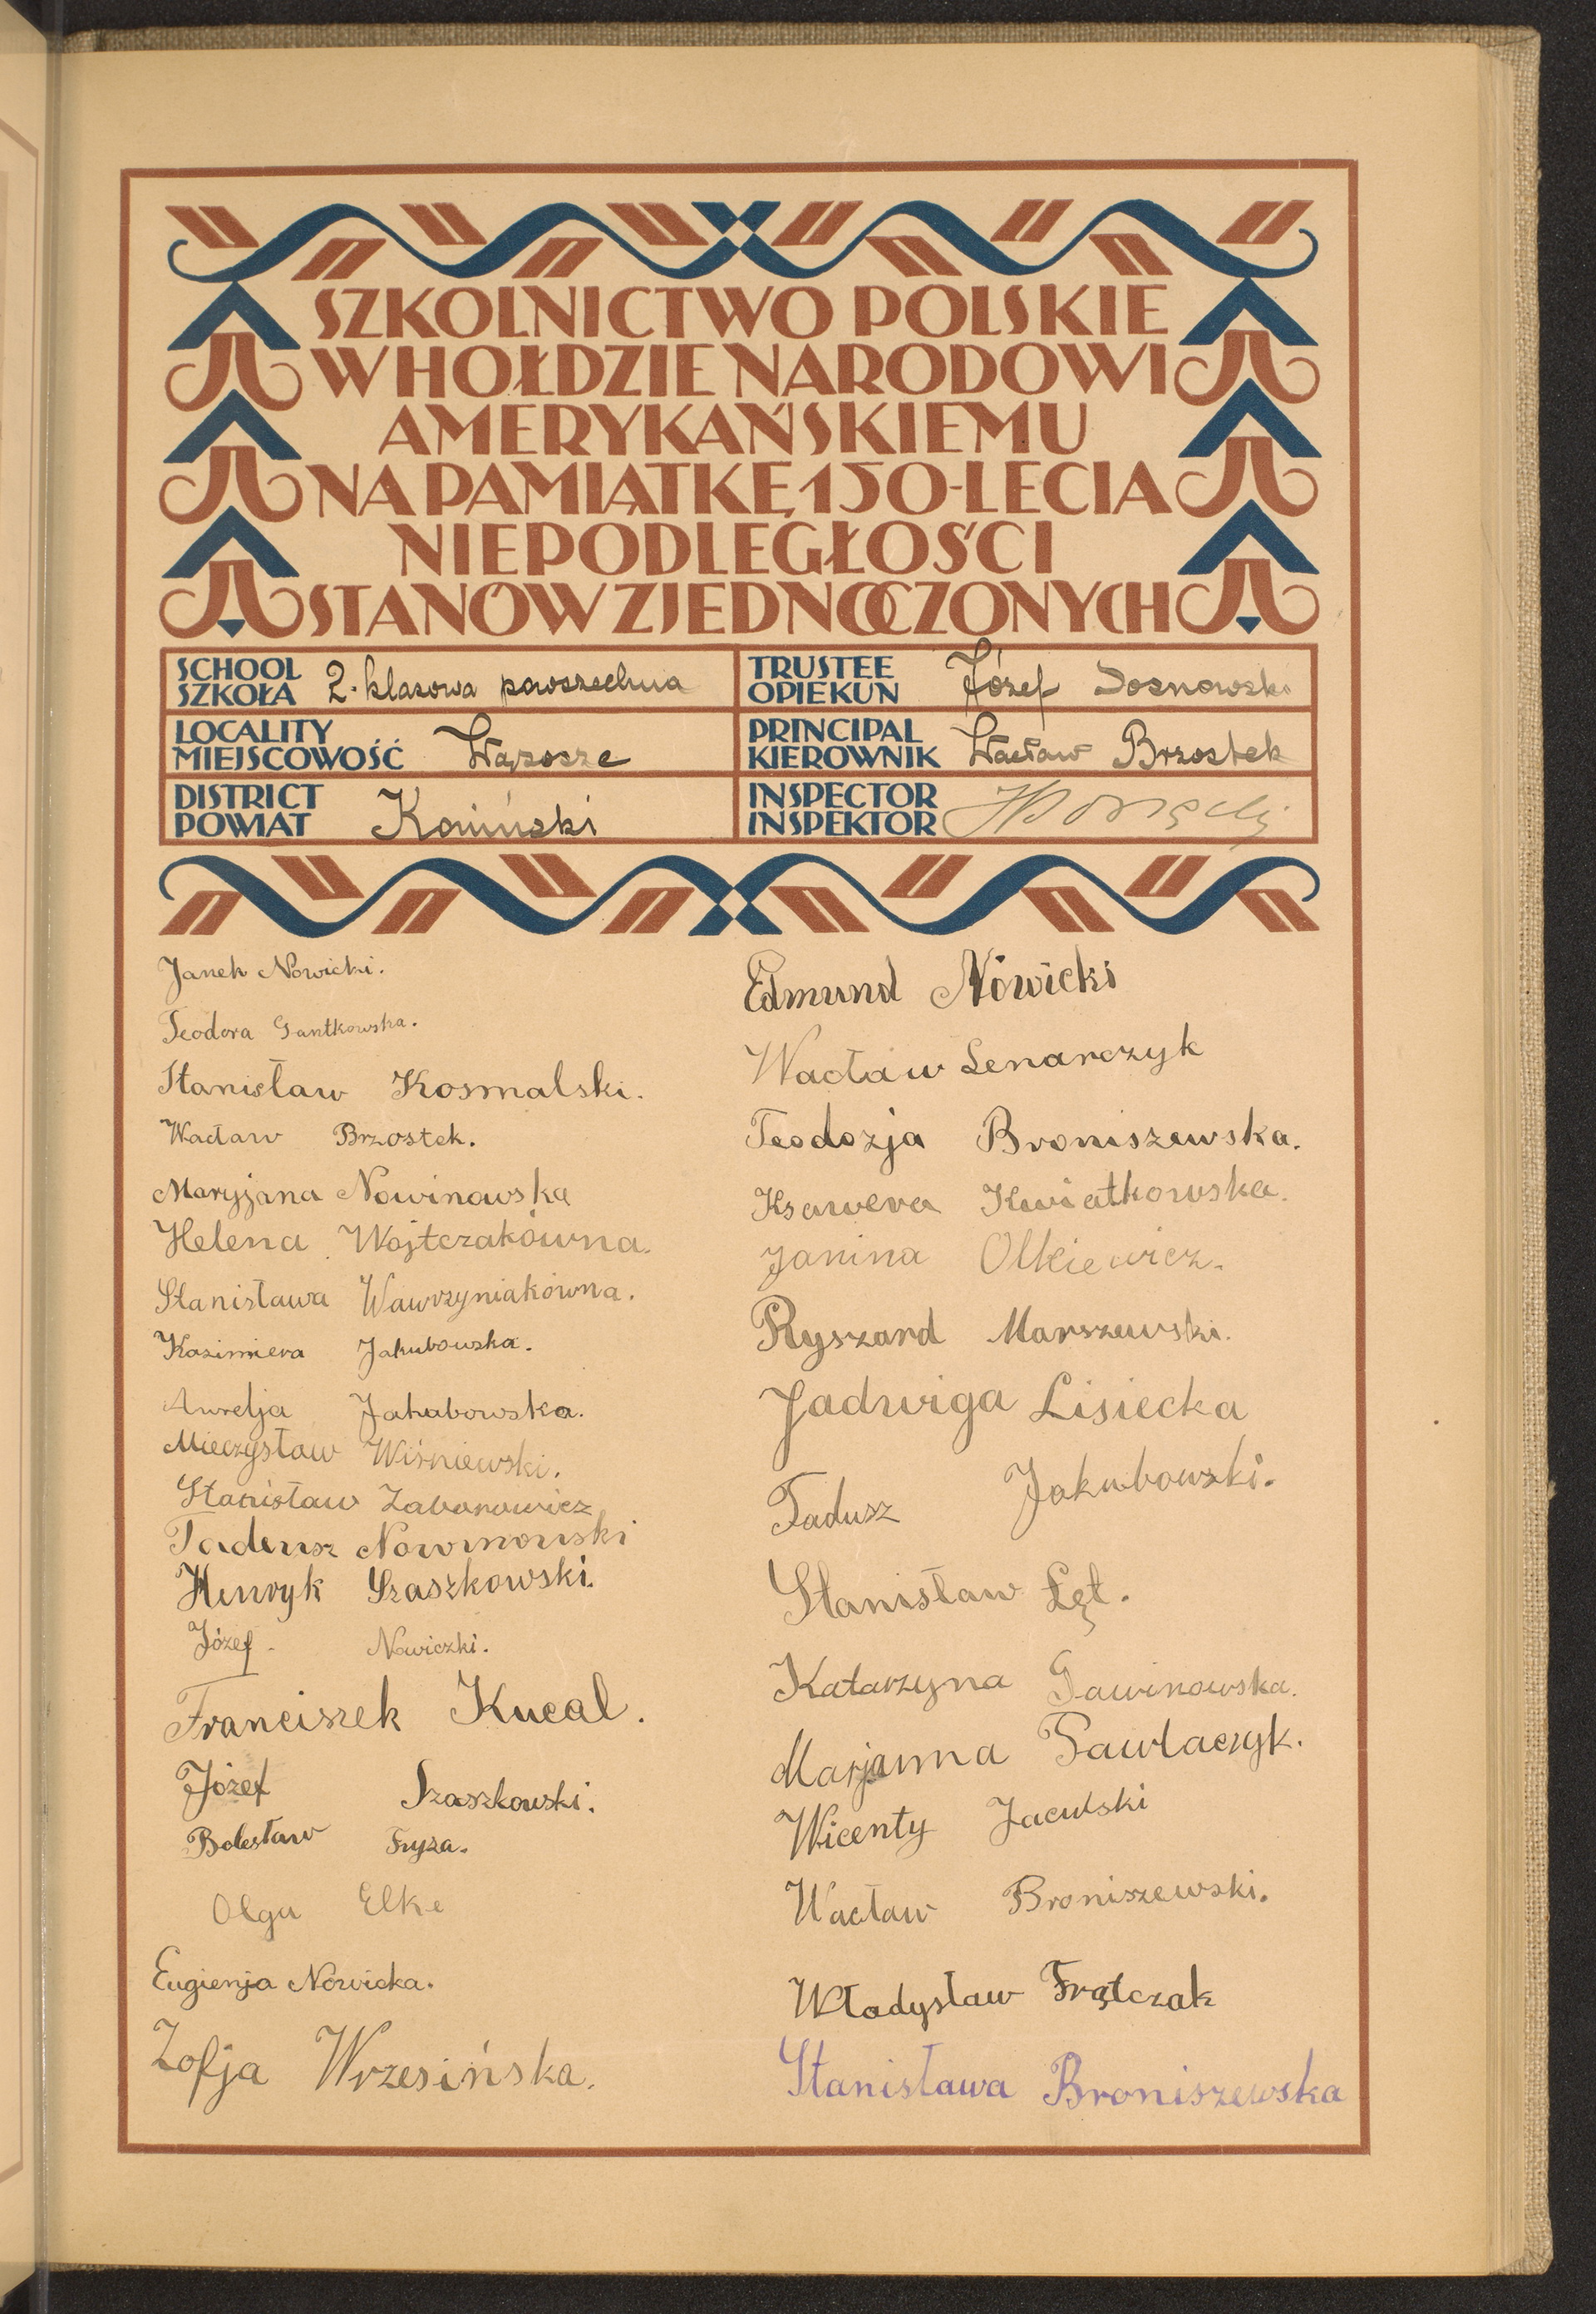 SZKOLNICTWO POLSKIE
W HOŁDZIE NARODOWI
AMERYKAŃSKIEMU
NA PAMIĄTKĘ 150-LECIA
NIEPODLEGŁOŚCI
STANÓW ZJEDNOCZONYCH
SCHOOL
SZKOŁA 2-klasowa powszechna
TRUSTEE
OPIEKUN Józef Sosnowski
LOCALITY
MIEJSCOWOŚĆ Wąsosze
PRINCIPAL
KIEROWNIK Wacław Brzostek
DISTRICT
POWIAT Koniński
INSPECTOR
INSPEKTOR
Janek Nowicki.
Teodora Gantkowska.
Stanisław Kosmalski.
Wacław Brzostek.
Maryjana Nowinowska
Helena Wojtczakówna.
Stanisława Wawrzyniakówna.
Kazimiera Jakubowska.
Aurelja Jakubowska.
Mieczysław Wiśniewski.
Stanisław Zaborowicz
Tadeusz Nowinowski
Henryk Szaszkowski.
Józef Nowiczki.
Franciszek Kucal.
Józef Szaszkowski.
Bolesław Fryza.
Olga Elke
Eugienja Nowicka.
Zofja Wrzesińska.
Edmund Nowicki
Wacław Lenarczyk
Teodozja Broniszewska.
Ksawera Kwiatkowska.
Janina Olkiewicz.
Ryszard Marszewski.
Jadwiga Lisiecka
Tadusz Jakubowski.
Stanisław Łęt.
Katarzyna Gawinowska.
Marjanna Pawlaczyk.
Wicenty Jaculski
Wacław Broniszewski.
Władysław Frątczak
Stanisława Broniszewska